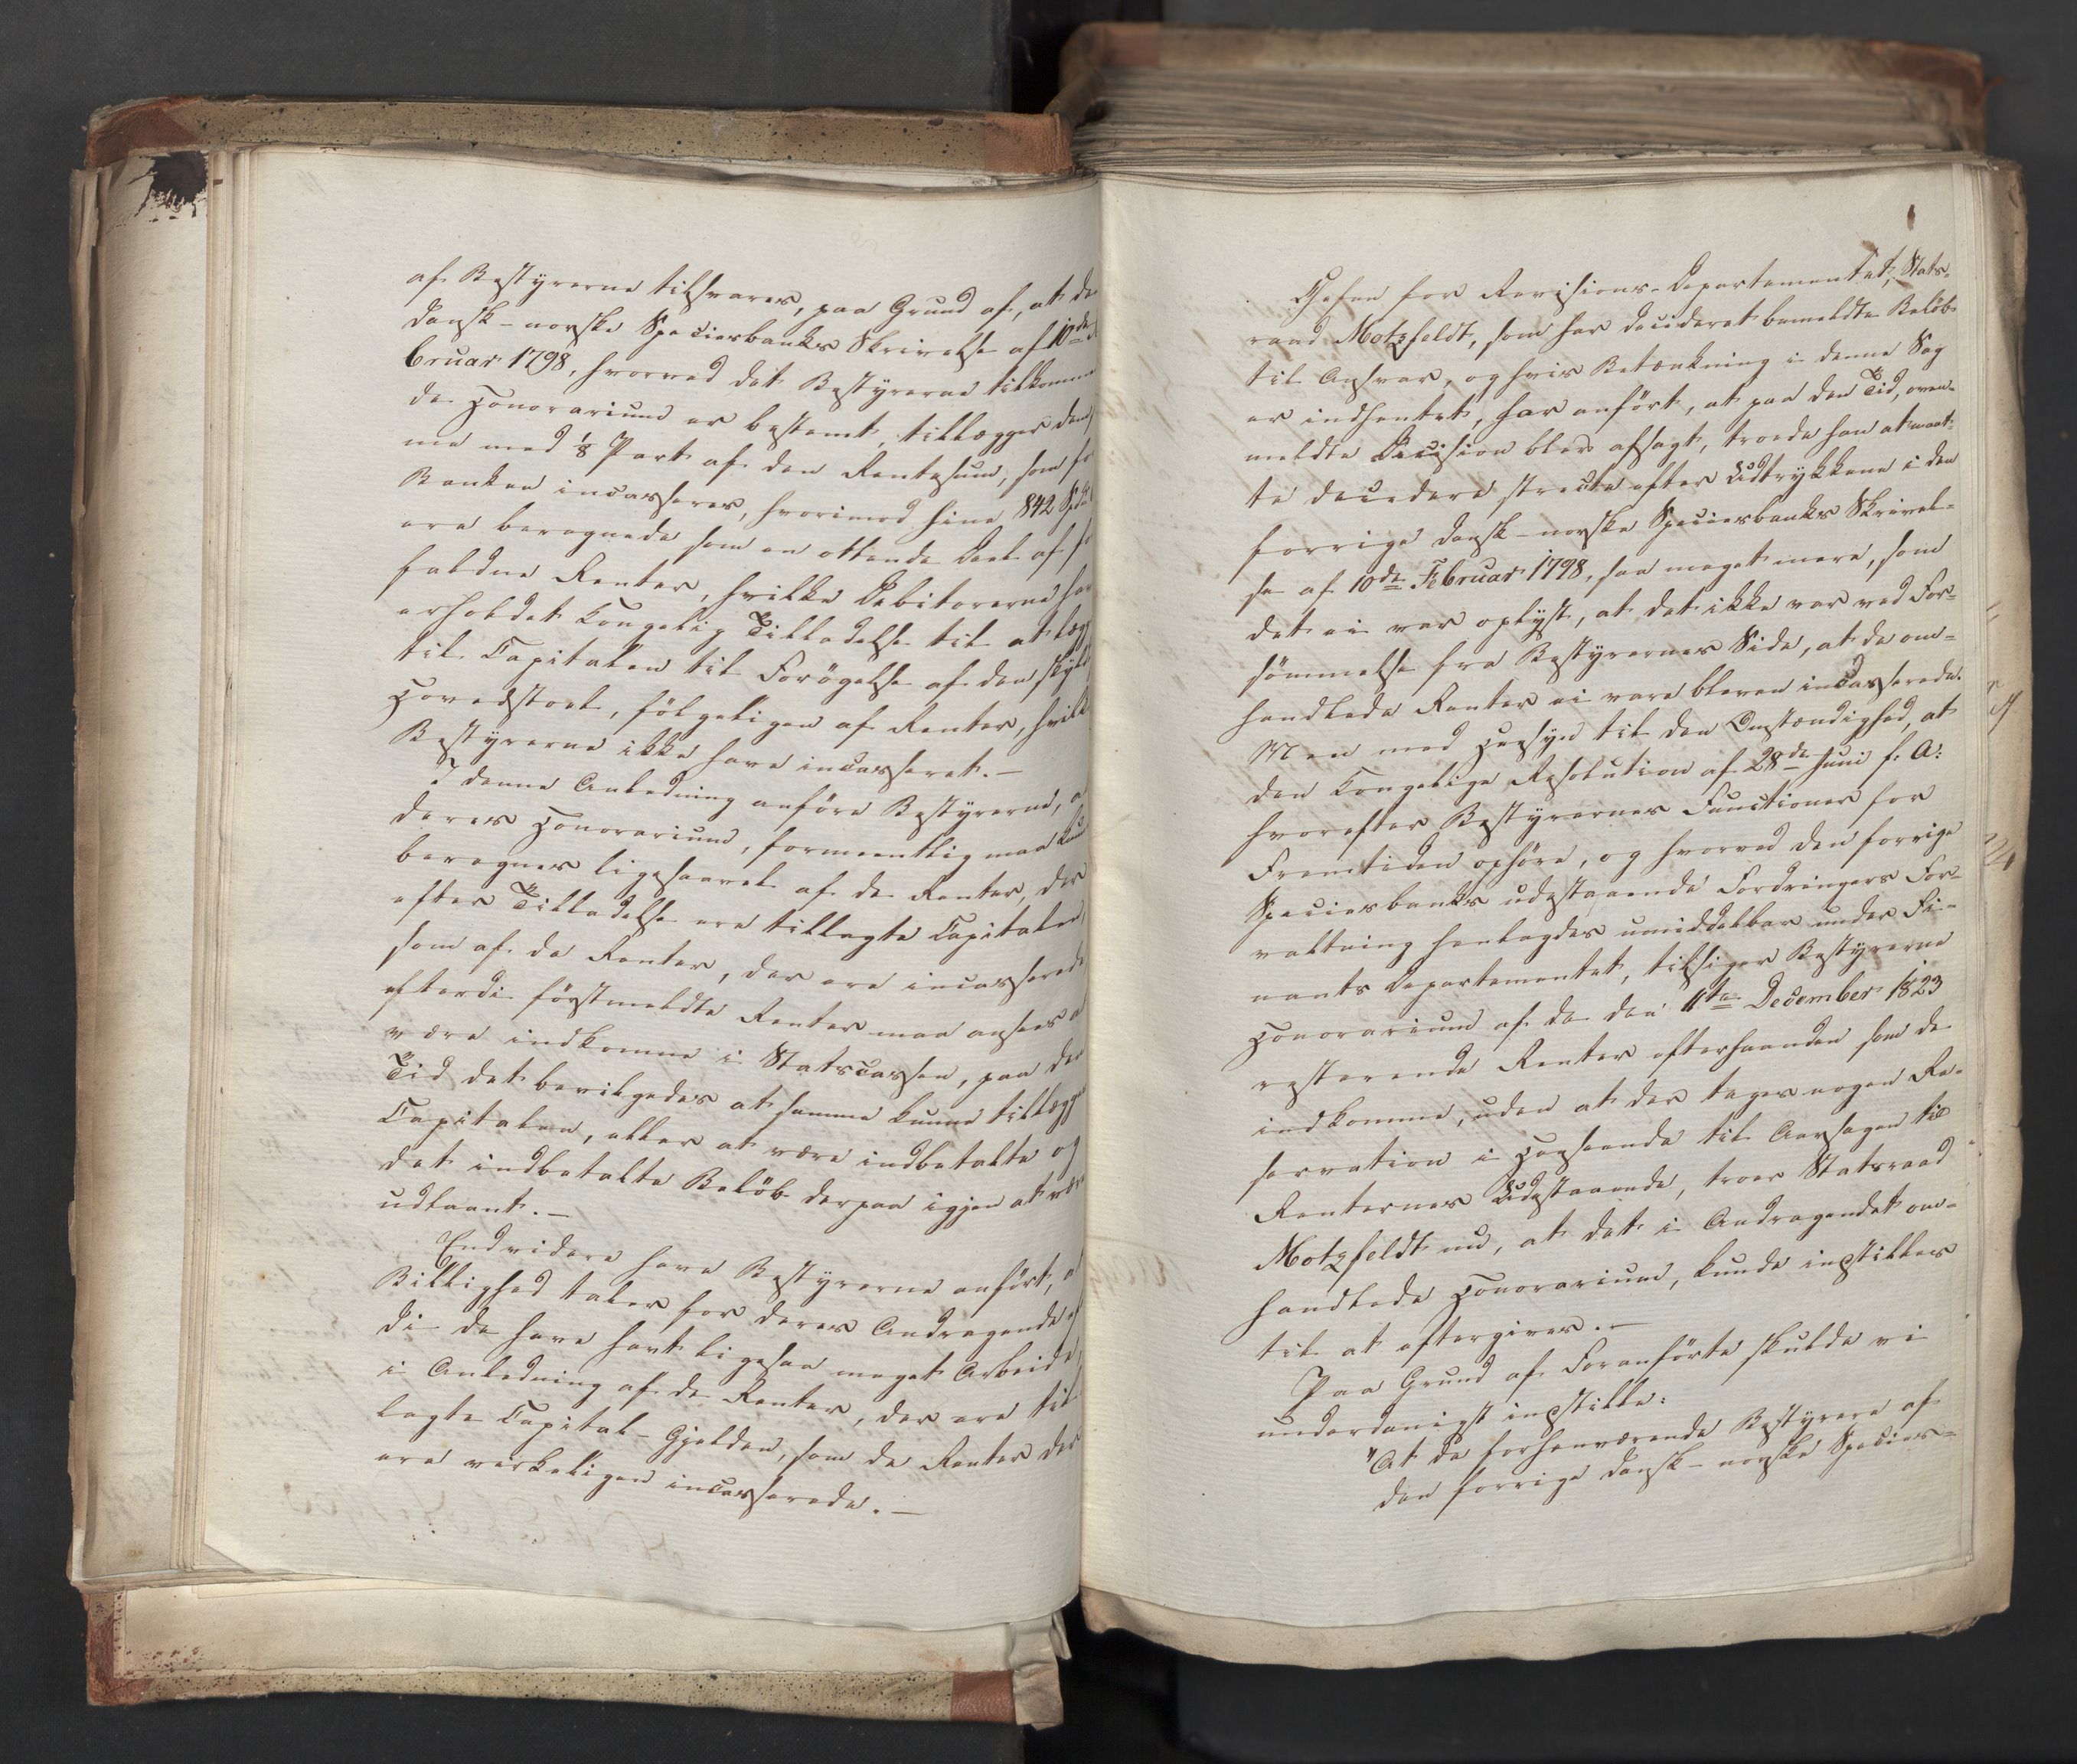 af Bestyrerne tilsvares, paa Grund af, at den
dansk-norske Speciesbanks Skrivelse af 10de Fe
bruar 1798, hvorved det Bestyrerne tilkommen
de Honorarium er bestemt, tillægger dem
me med 1/8 Part af den Rentesum, som for
Banken incasseres, hvorimod hine 842 Spd
ere beregnede som en ottende Deel af for
faldne Renter, hvilke Debitorerne have
erholdet Kongelig Tilladelse til at lægge
til Capitalen til Forøgelse af den skyld
Hovedstoel, følgeligen af Renter, hvilke
Bestyrerne ikke have incasseret.—
I denne Anledning anføre Bestyrerne, at
deres Honorarium, formeentlig maa kunne
beregnes ligesaavel af de Renter, der
efter Tilladelse ere tillagte Capitalen,
som af de Renter, der ere incasserede
efterdi førstmeldte Renter maa ansees at
være indkomne i Statscassen, paa den
Tid det bevilgedes at samme kunne tillægges
Capitalen, eller at være indbetalte og
det indbetalte Beløb derpaa igjen at være
udlaant.—
Endvidere have Bestyrerne anført, at
Billighed taler for deres Andragende ef
di de have havt ligesaa meget Arbeide
i Anledning af de Renter, der ere til
lagte Capital-Gjelden, som de Renter der
ere virkeligen incasserede.—
Chefen for Revisions-Departementet, Stats-
raad Motzfeldt, som har decideret bemeldte Beløb
til Ansvar, og hvis Betænkning i denne Sag
er indhentet, har anført, at paa den Tid, oven-
meldte Decision blev afsagt, troede han at maat-
te decidere strecte efter Udtrykkene i den
forrige dansk-norske Speciesbanks Skrivel-
se af 10de Februar 1798, saa meget mere, som
det ei var oplyst, at det ikke var ved For-
sømmelse fra Bestyrernes Side, at de om-
handlede Renter ei vare bleven incasserede.
Men med Hensyn til den Omstændighed, at
den Kongelige Resolution af 28de Juni f. A:
hvorefter Bestyrernes Functioner for
Fremtiden ophøre, og hvorved den forrige
Speciesbanks udestaaende Fordringers For-
valtning henlagdes umiddelbar under Fi-
nants Departementet, tilsiger Bestyrerne
Honorarium af de den 11te December 1823
resterende Renter efterhaanden som de
indkomme, uden at der tages nogen Re-
servation i Henseende til Aarsagen til
Renternes Udestaaende, troer Statsraad
Motzfeldt nu, at det i Andragendet om-
handlede Honorarium, kunde indstilles
til at eftergives.—
Paa Grund af Foranførte skulde vi
underdanigst indstille:
"At de forhenværende Bestyrere af
den forrige dansk-norske Species-